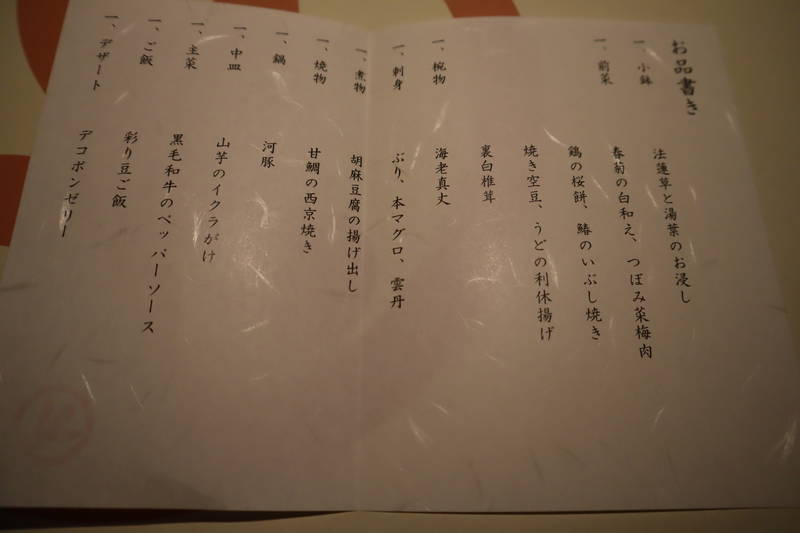 お品書き
一、小鉢　法蓮草と湯葉のお浸し
一、前菜　春菊の白和え、つぼみ菜梅肉
鶏の桜餅、鰆のいぶし焼き
焼き空豆、うどの利休揚げ
裏白椎茸
一、椀物　海老真丈
一、刺身　ぶり、本マグロ、雲丹
一、煮物　胡麻豆腐の揚げ出し
一、焼物　甘鯛の西京焼き
一、鍋　河豚
一、中皿　山芋のイクラがけ
一、主菜　黒毛和牛のペッパーソース
一、ご飯　彩り豆ご飯
一、デザート　デコポンゼリー